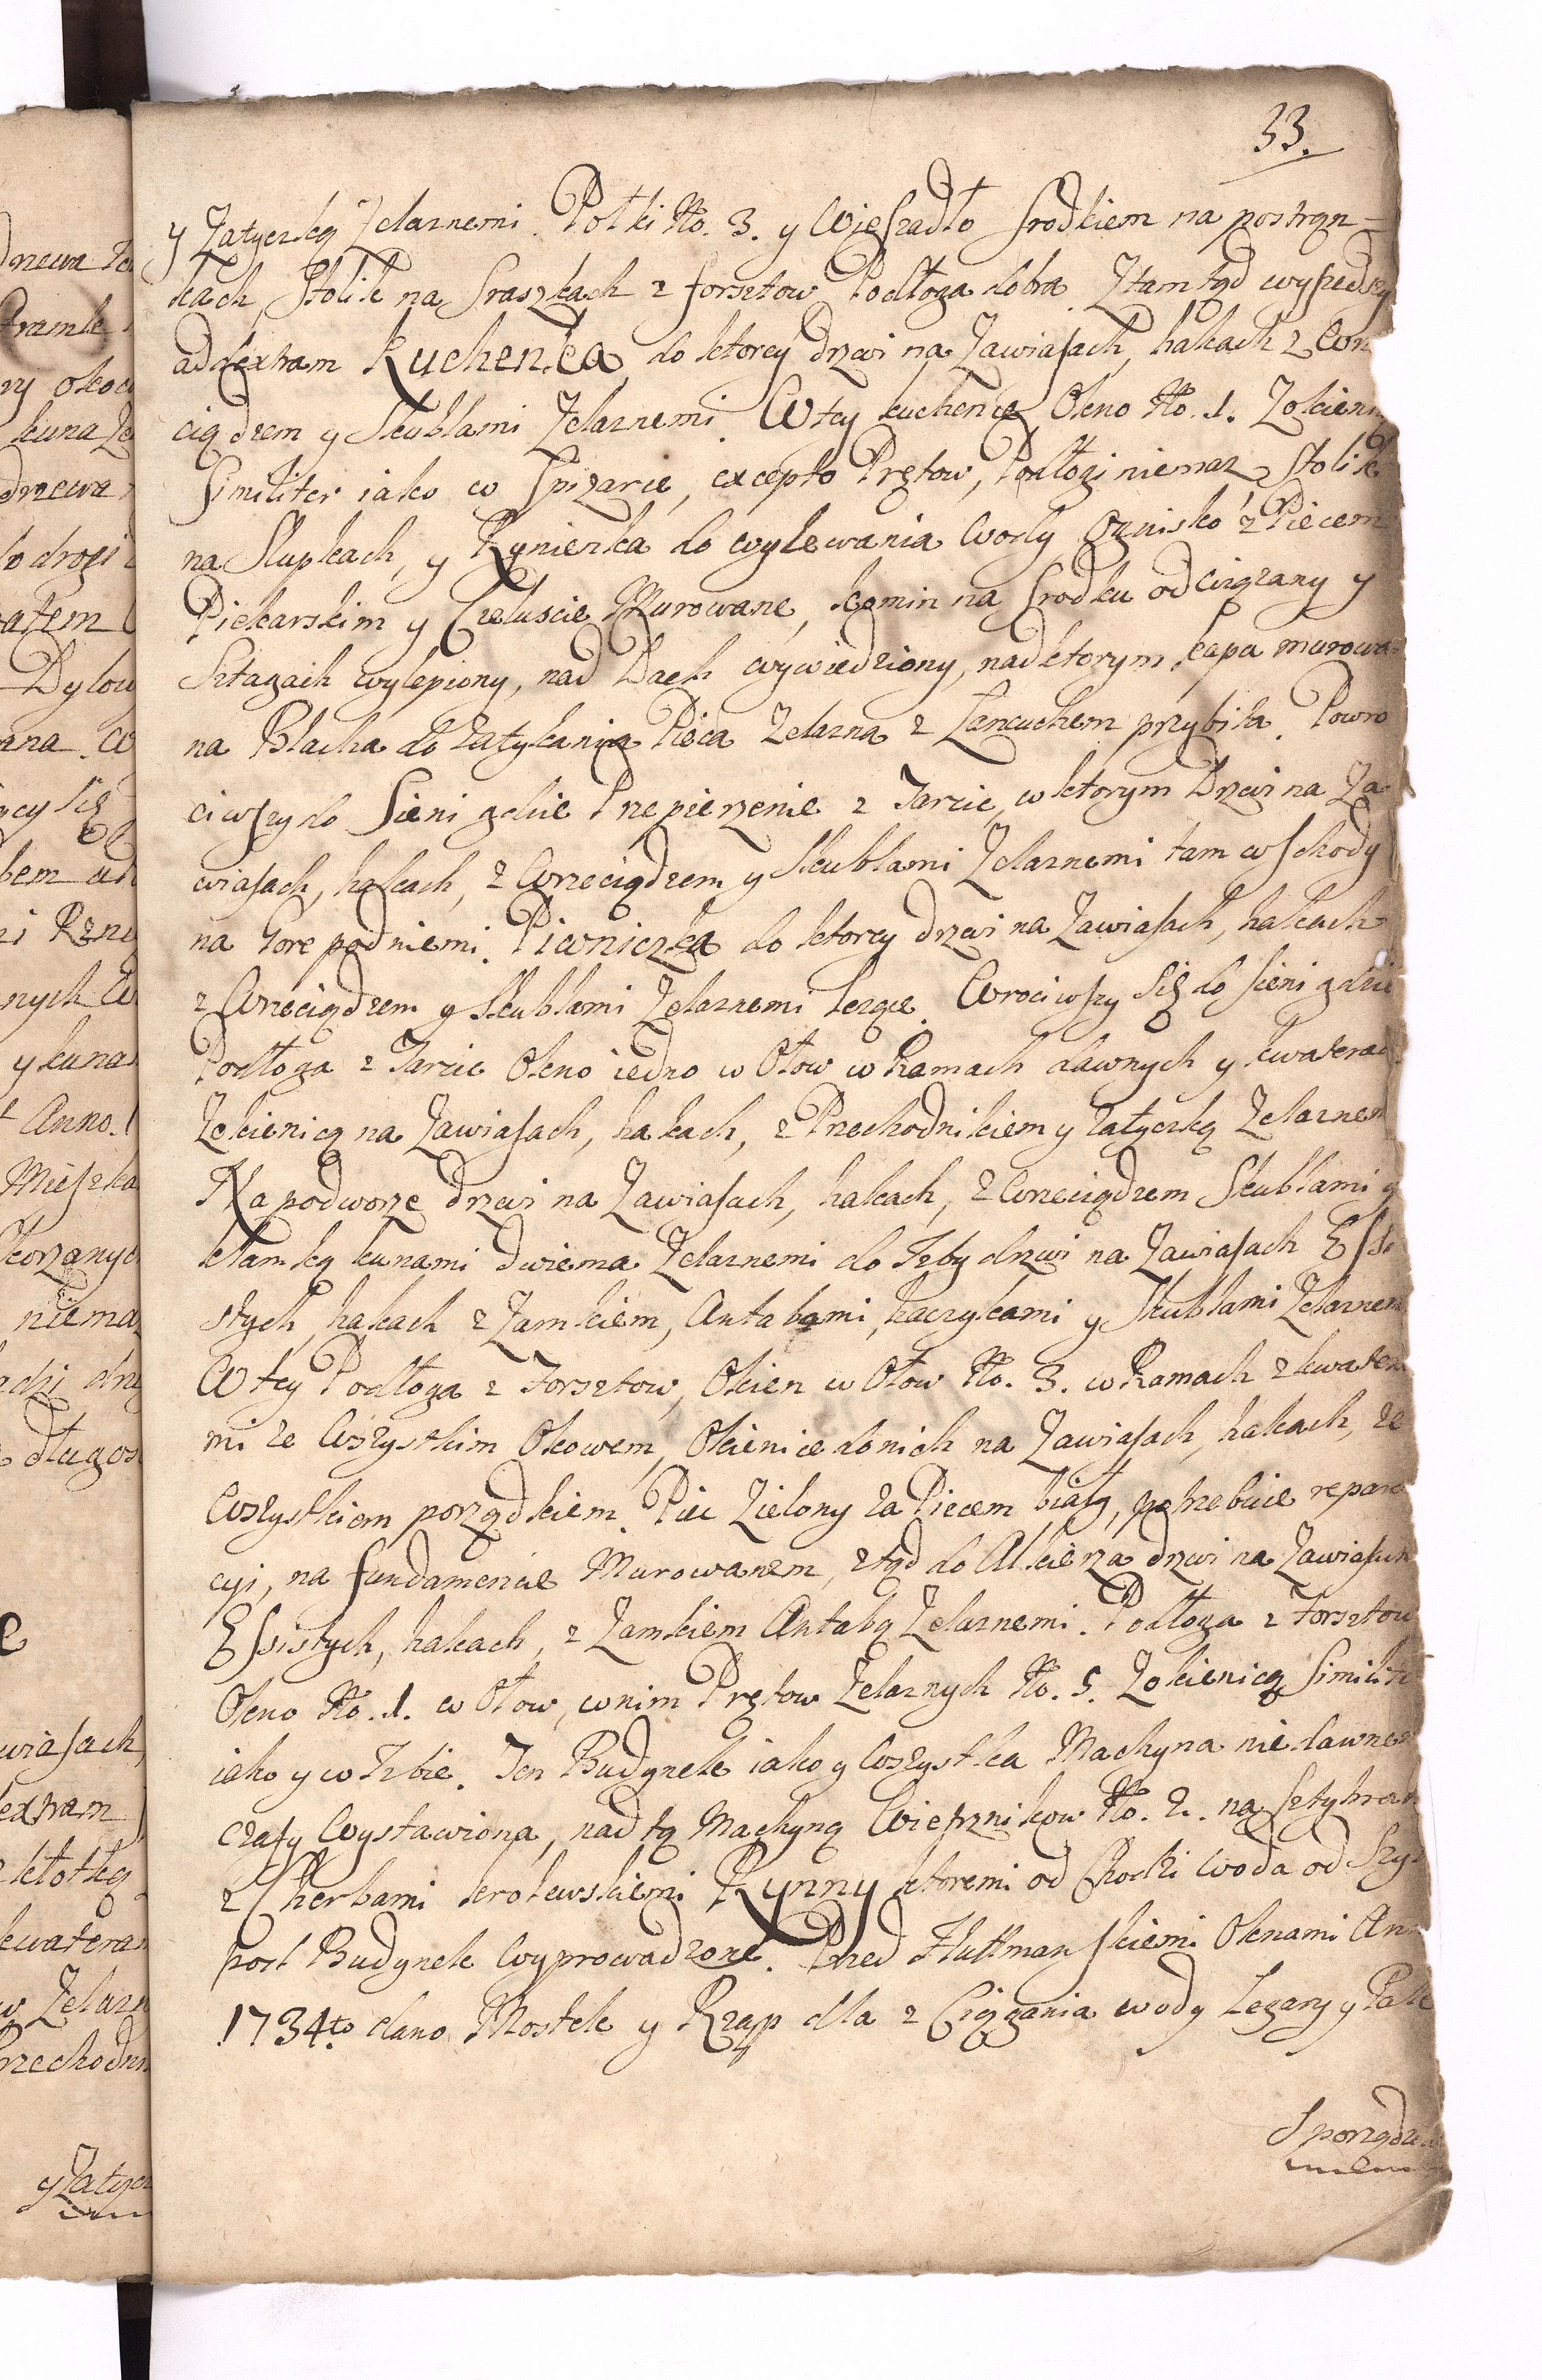 33.
y Zatyczką Zelaznemi. Połki No. 3. y Wieszadło srodkiem na postron=
kach, Stolik na Kraszkach z forsztow Podłoga dobra. Ztamtąd wyszedszy
ad dextram Kuchenka do ktorey drzwi na Zawiasach, hakach z Wrze
ciądzem y Skublami Zelaznemi. W tey kuchence Okno No. 1. Zokienni
Similiter iako w Spizarce, excepto Prętow, Podłogi niemasz, Stolik
na Słupkach, y Rynienka do wylewania Wody Ognisko z Piecem
Piekarskim y Czeluscie Murowane, komin na Srodku odciązany y
Sztagach wylepiony, nad Dach wywiedziony, nad ktorym kapa murowa=
na Blacha do zatykania Pieca Zelazna z Łancuchem przybita. Powro
ciwszy do Sieni gdzie Przepierzenie z Tarcic, w ktorym Drzwi na Za
wiasach, hakach, z Wrzeciądzem y Skublami Zelaznemi tam wschody
na Gore pod niemi. Piwniczka do ktorey drzwi na Zawiasach, hakach
z Wrzeciądzem y Skublami Zelaznemi lezące. Wrociwszy Się do sieni gdzie
Podłoga z Tarcic Okno iedno w Ołow w Ramach dawnych y kwaterach
Zokienicą na Zawiasach, hakach, z Przechodnikiem y zatyczką Zelaznem
Na podworze drzwi na Zawiasach, hakach, z Wrzeciądzem Skublami y
klamką kunami dwiema Zelaznemi do Izby drzwi na Zawiasach Essi
stych, hakach z Zamkiem, Antabami, haczykami y Skublami Zelaznem
W tey Podłoga z Forsztow, Okien w Ołow No. 3. w Ramach z kwatera
mi ze Wszystkim Okowem, Okienice do nich na Zawiasach, hakach, ze
Wszystkiem porządkiem. Piec Zielony za Piecem biały, potrzebuie repara
cyi, na fundamencie Murowanem, ztąd do Alkierza drzwi na Zawiasach
Essistych, hakach, z Zamkiem Antabą Zelaznemi. Podłoga z Forsztow
Okno No. 1. w Ołow, w nim Prętow Zelaznych No. 5. Zokienicą Similite
iako y w Izbie. Ten Budynek iako y Wszystka Machyna niedawnem
czasy Wystawiona, nad tą Machyną Wietrznikow No. 2. na Sztybrach
z Cherbami krolewskiemi Rynny ktoremi od Chodzi woda od Szy
post Budynek Wyprowadzone. Przed Huttmanskiemi Oknami An
1734to dano Mostek y Rząp dla z Ciągania wody Legary y Pale
Sporządze